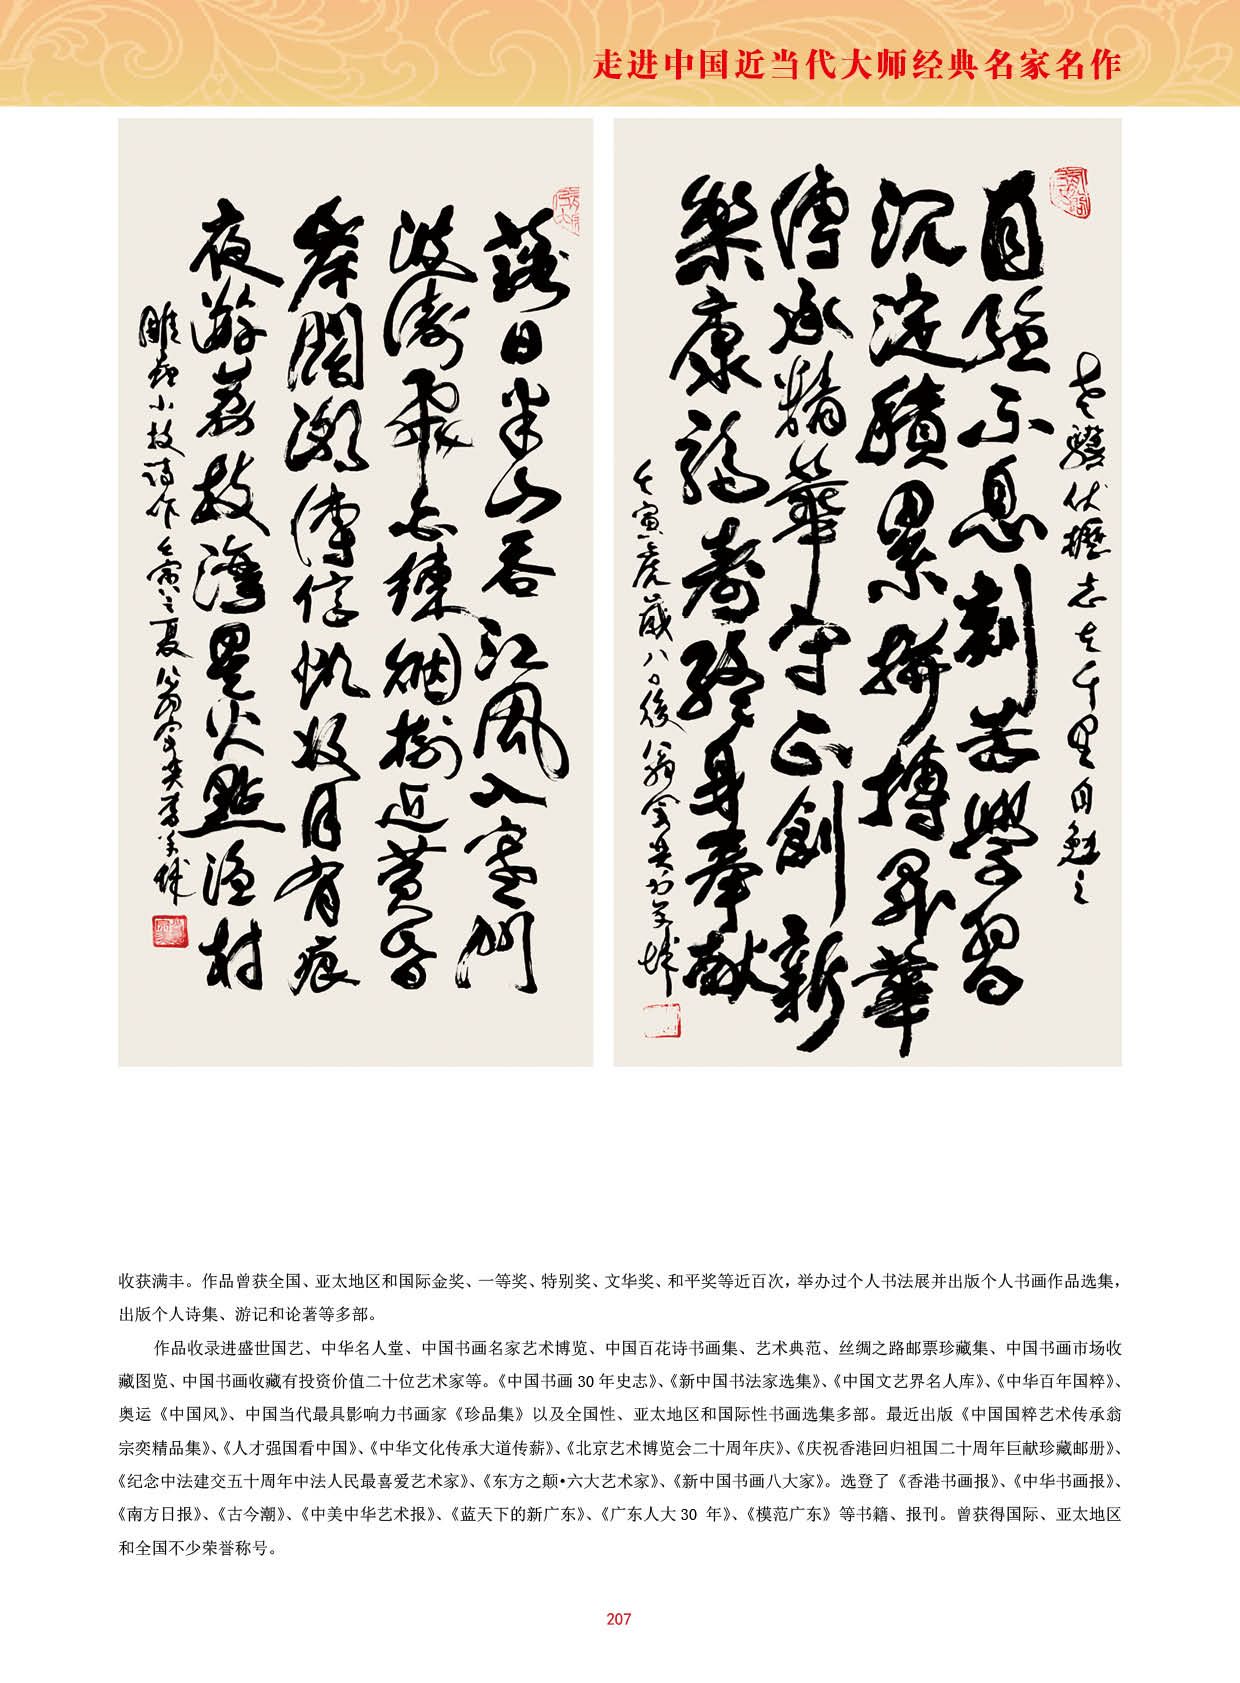 走进中国近当代大师经典名家名作
老骥伏櫪志在千里自勉之
自强不息刻苦學習
沉淀積累拚搏昇華
傳承精華守正創新
樂康福壽終身奉献
壬寅虎歲八〇後翁宗奕書羊城
落日半山吞江風入寒門
波濤飛匹練烟樹近黄昏
岸闊潮傳信帆收月有痕
夜游荔枝灣星火點漁村
雕蟲小技詩作壬寅之夏翁宗奕書羊城
收获满丰。作品曾获全国、亚太地区和国际金奖、一等奖、特别奖、文华奖、和平奖等近百次，举办过个人书法展并出版个人书画作品选集，
出版个人诗集、游记和论著等多部。
作品收录进盛世国艺、中华名人堂、中国书画名家艺术博览、中国百花诗书画集、艺术典范、丝绸之路邮票珍藏集、中国书画市场收
藏图览、中国书画收藏有投资价值二十位艺术家等。《中国书画30年史志》、《新中国书法家选集》、《中国文艺界名人库》、《中华百年国粹》、
奥运《中国风》、中国当代最具影响力书画家《珍品集》以及全国性、亚太地区和国际性书画选集多部。最近出版《中国国粹艺术传承翁
宗奕精品集》、《人才强国看中国》、《中华文化传承大道传薪》、《北京艺术博览会二十周年庆》、《庆祝香港回归祖国二十周年巨献珍藏邮册》、
《纪念中法建交五十周年中法人民最喜爱艺术家》、《东方之颠•六大艺术家》、《新中国书画八大家》。选登了《香港书画报》、《中华书画报》、
《南方日报》、《古今潮》、《中美中华艺术报》、《蓝天下的新广东》、《广东人大30 年》、《模范广东》等书籍、报刊。曾获得国际、亚太地区
和全国不少荣誉称号。
207